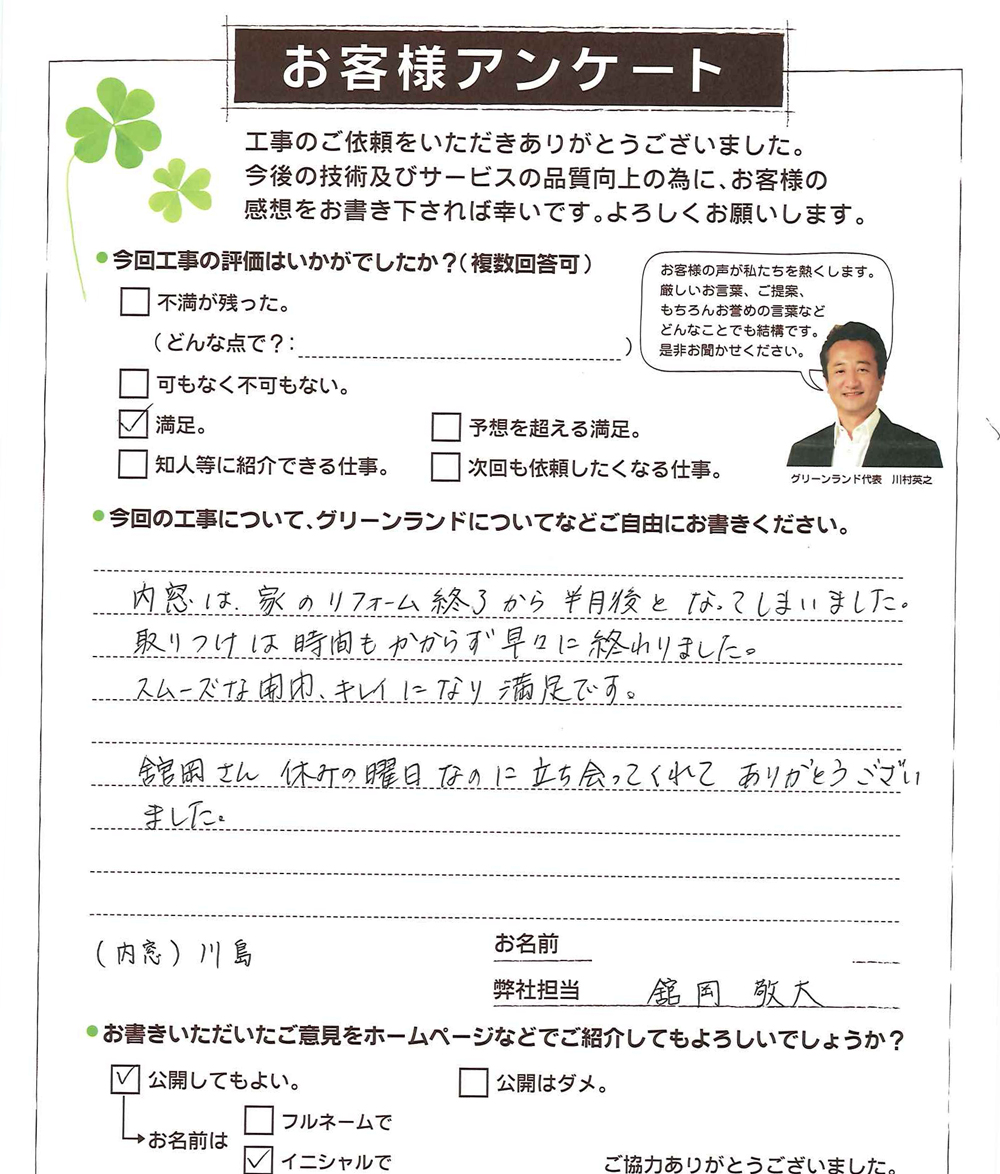 お客様アンケート
工事のご依頼をいただきありがとうございました。
今後の技術及びサービスの品質向上の為に、お客様の
感想をお書き下されば幸いです。よろしくお願いします。
●今回工事の評価はいかがでしたか？(複数回答可)
不満が残った。
(どんな点で？: )
可もなく不可もない。
満足。
予想を超える満足。
知人等に紹介できる仕事。
次回も依頼したくなる仕事。
お客様の声が私たちを熱くします。
厳しいお言葉、ご提案、
もちろんお誉めの言葉など
どんなことでも結構です。
是非お聞かせください。
グリーンランド代表 川村英之
●今回の工事について、グリーンランドについてなどご自由にお書きください。
内窓は、家のリフォーム終了から半月後となってしまいました。
取りつけは時間もかからず早々に終わりました。
スムーズな開閉、キレイになり満足です。
舘岡さん 休みの曜日なのに立ち会ってくれて ありがとうござい
ました。
(内窓) 川島
お名前
弊社担当 舘岡 敬大
●お書きいただいたご意見をホームページなどでご紹介してもよろしいでしょうか？
公開してもよい。
公開はダメ。
お名前は
フルネームで
イニシャルで
ご協力ありがとうございました。